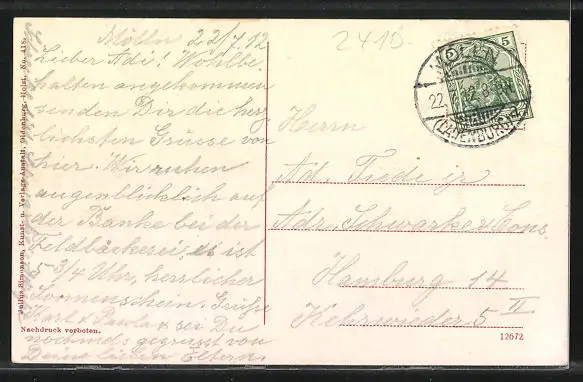 Mölln 22/7.12
Lieber Adi! Wohlbe
halten angekommen
senden Dir die herz
lichsten Grüsse von
hier. Wir ruhen
augenblicklich auf
der Banke bei der
Feldbäckerei, es ist
5 3/4 Uhr, herrlicher
Sonnenschein. Grüße
Karl & Paula & sei Du
nochmals gegrüsst von
Deine lieben Eltern.
Julius Simonsen, Kunst- u. Verlags-Anstalt, Oldenburg-Holst. No. 418.
Nachdruck verboten.
2410
5 5
MÖLLN
22.
(LAUENBURG)
Herrn
Ad. Tiede jr
Adr. Schwarke & Cons.
Hamburg 14
Kehrwieder 5 II
12672